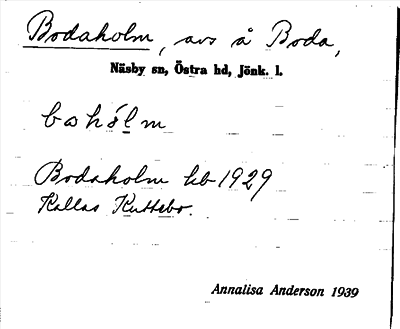 Bodaholm, avs å Boda,
Näsby sn, Östra hd, Jönk. l.
bohólm
Bodaholm kb 1929
Kallas Kuttebo.
Annalisa Anderson 1939